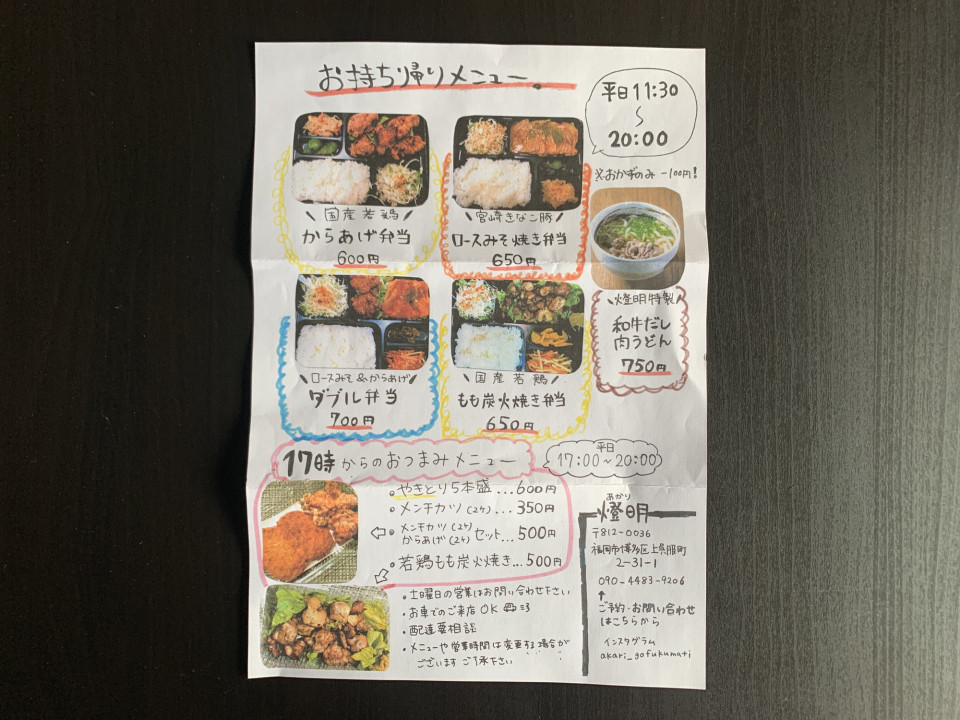 お持ち帰りメニュー
平日11:30
〜
20:00
※おかずのみ -100円!
国産若鶏
からあげ弁当
600円
宮崎きなこ豚
ロースみそ焼き弁当
650円
燈明特製
和牛だし
肉うどん
750円
ロースみそ&からあげ
ダブル弁当
700円
国産若鶏
もも炭火焼き弁当
650円
17時からのおつまみメニュー
平日
17:00~20:00
・やきとり5本盛...600円
・メンチカツ(2ケ)...350円
・メンチカツ(2ケ)
からあげ(2ケ)セット...500円
・若鶏もも炭火焼き...500円
・土曜日の営業はお問い合わせ下さい
・お車でのご来店OK
・配達要相談
・メニューや営業時間は変更する場合が
ございます ご了承下さい
あかり
燈明
〒812-0036
福岡市博多区上呉服町
2-31-1
090-4483-9206
↑
ご予約・お問い合わせ
はこちらから
インスタグラム
akari_gofukumati